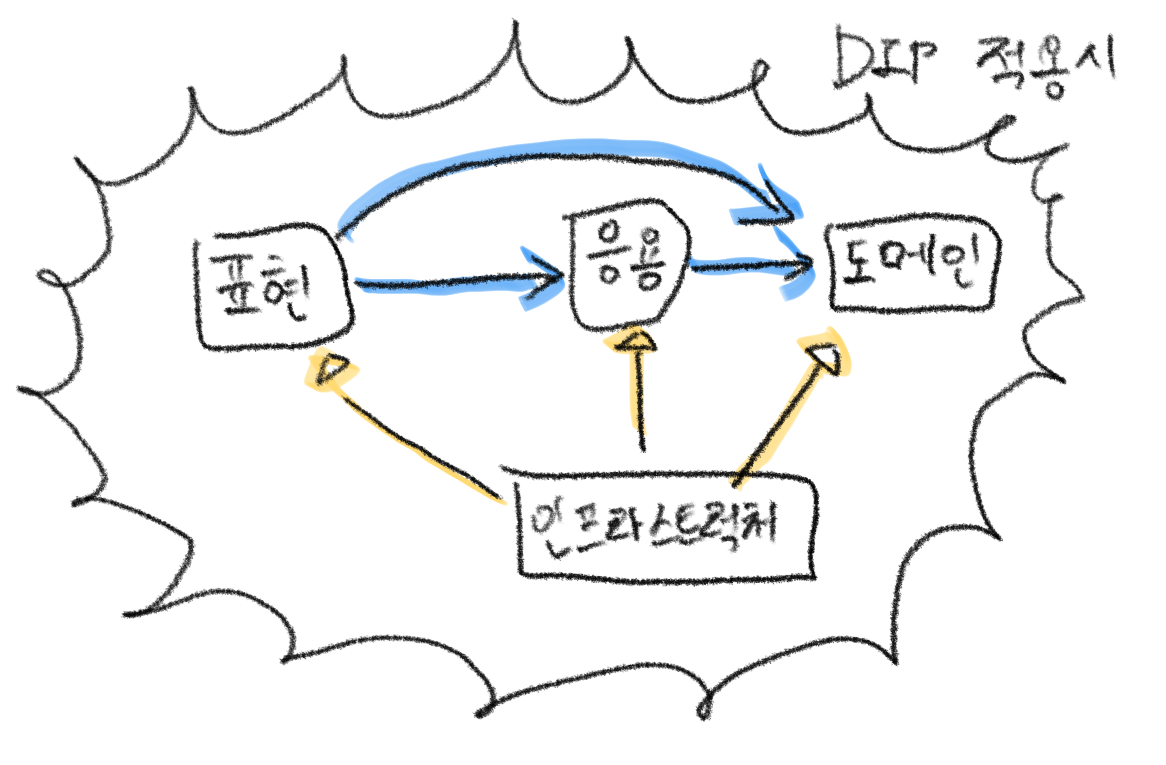 DIP 적용시
표현
응용
도메인
인프라스트럭처